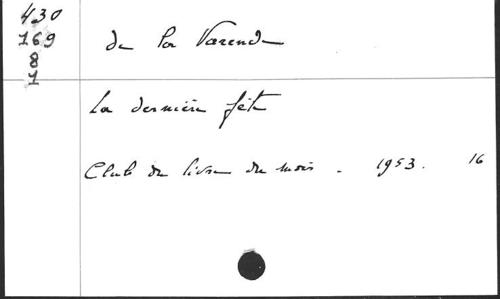 430
169
8
1
de la Varende
La dernière fête
Club du livre du mois - 1953. 16